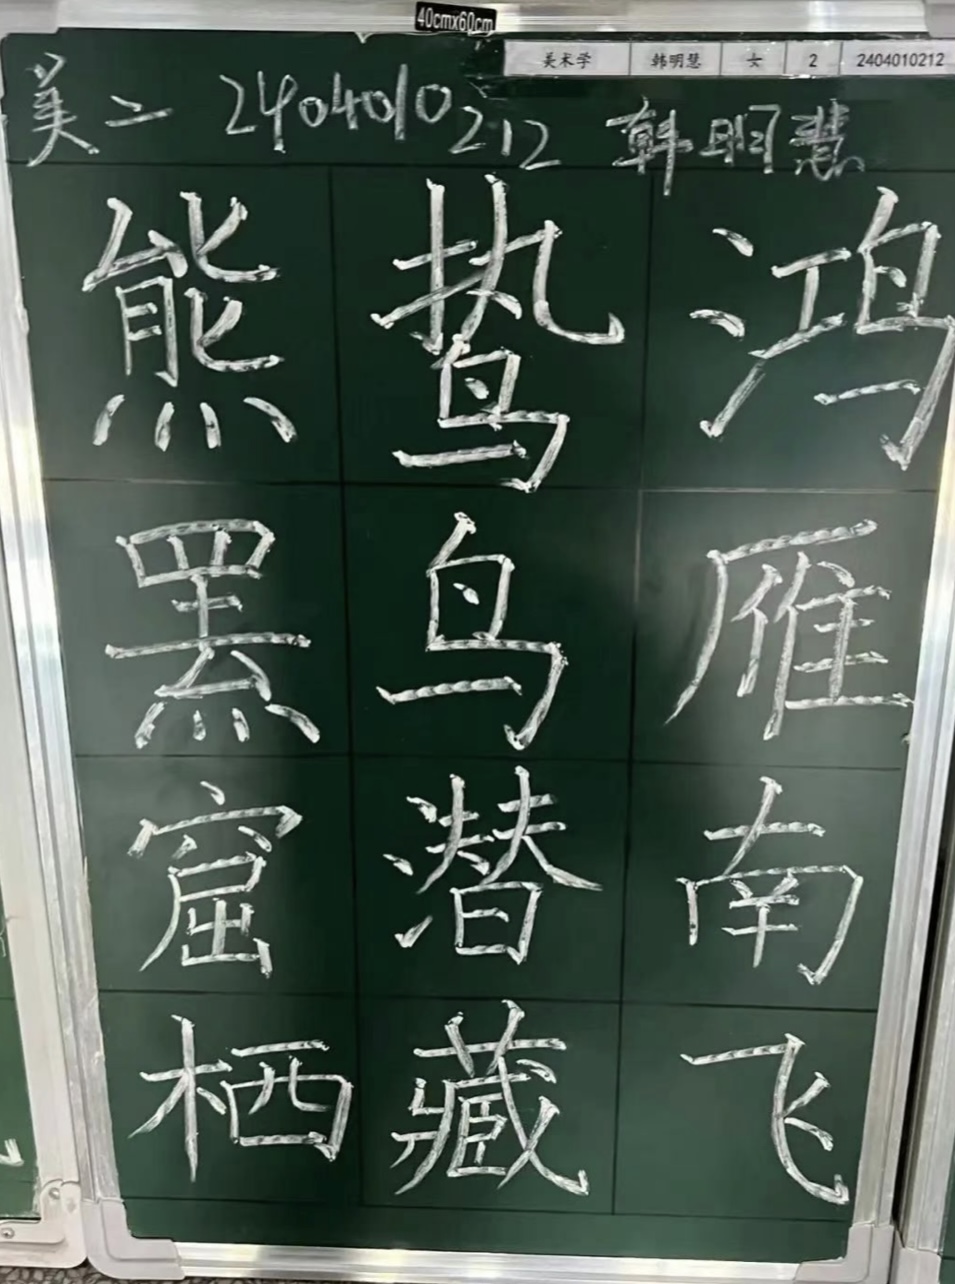 40cmx60cm
美术学 韩明慧 女 2 2404010212
美二 2404010212 韩明慧
鸿雁南飞
鸷鸟潜藏
熊罴窟栖